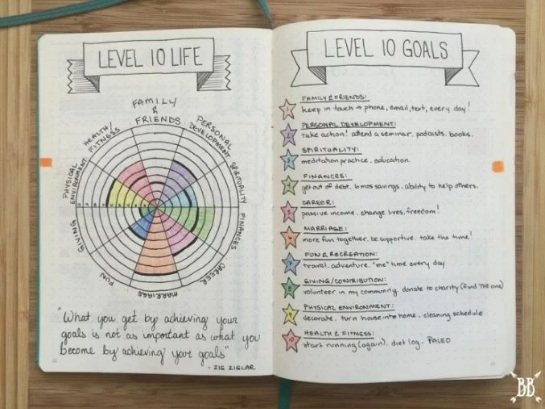 LEVEL 10 LIFE
FAMILY
&
FRIENDS
PERSONAL
DEVELOPMENT
SPIRITUALITY
FINANCES
CAREER
MARRIAGE
FUN
GIVING
PHYSICAL
ENVIRONMENT
HEALTH/
FITNESS
"What you get by achieving your
goals is not as important as what you
become by achieving your goals"
- ZIG ZIGLAR
LEVEL 10 GOALS
FAMILY & FRIENDS:
keep in touch → phone, email, text, every day!
PERSONAL DEVELOPMENT:
take action! attend a seminar, podcasts, books.
SPIRITUALITY:
meditation practice. education.
FINANCES:
get out of debt. 6 mos savings. ability to help others.
CAREER:
passive income. change lives. freedom!
MARRIAGE:
more fun together. be supportive. take the time!
FUN & RECREATION:
travel. adventure. "me" time every day
GIVING/CONTRIBUTION:
volunteer in my community. donate to charity (find the one)
PHYSICAL ENVIRONMENT:
decorate. turn house into home. cleaning schedule
HEALTH & FITNESS:
start running (again). diet log. PALEO
BB